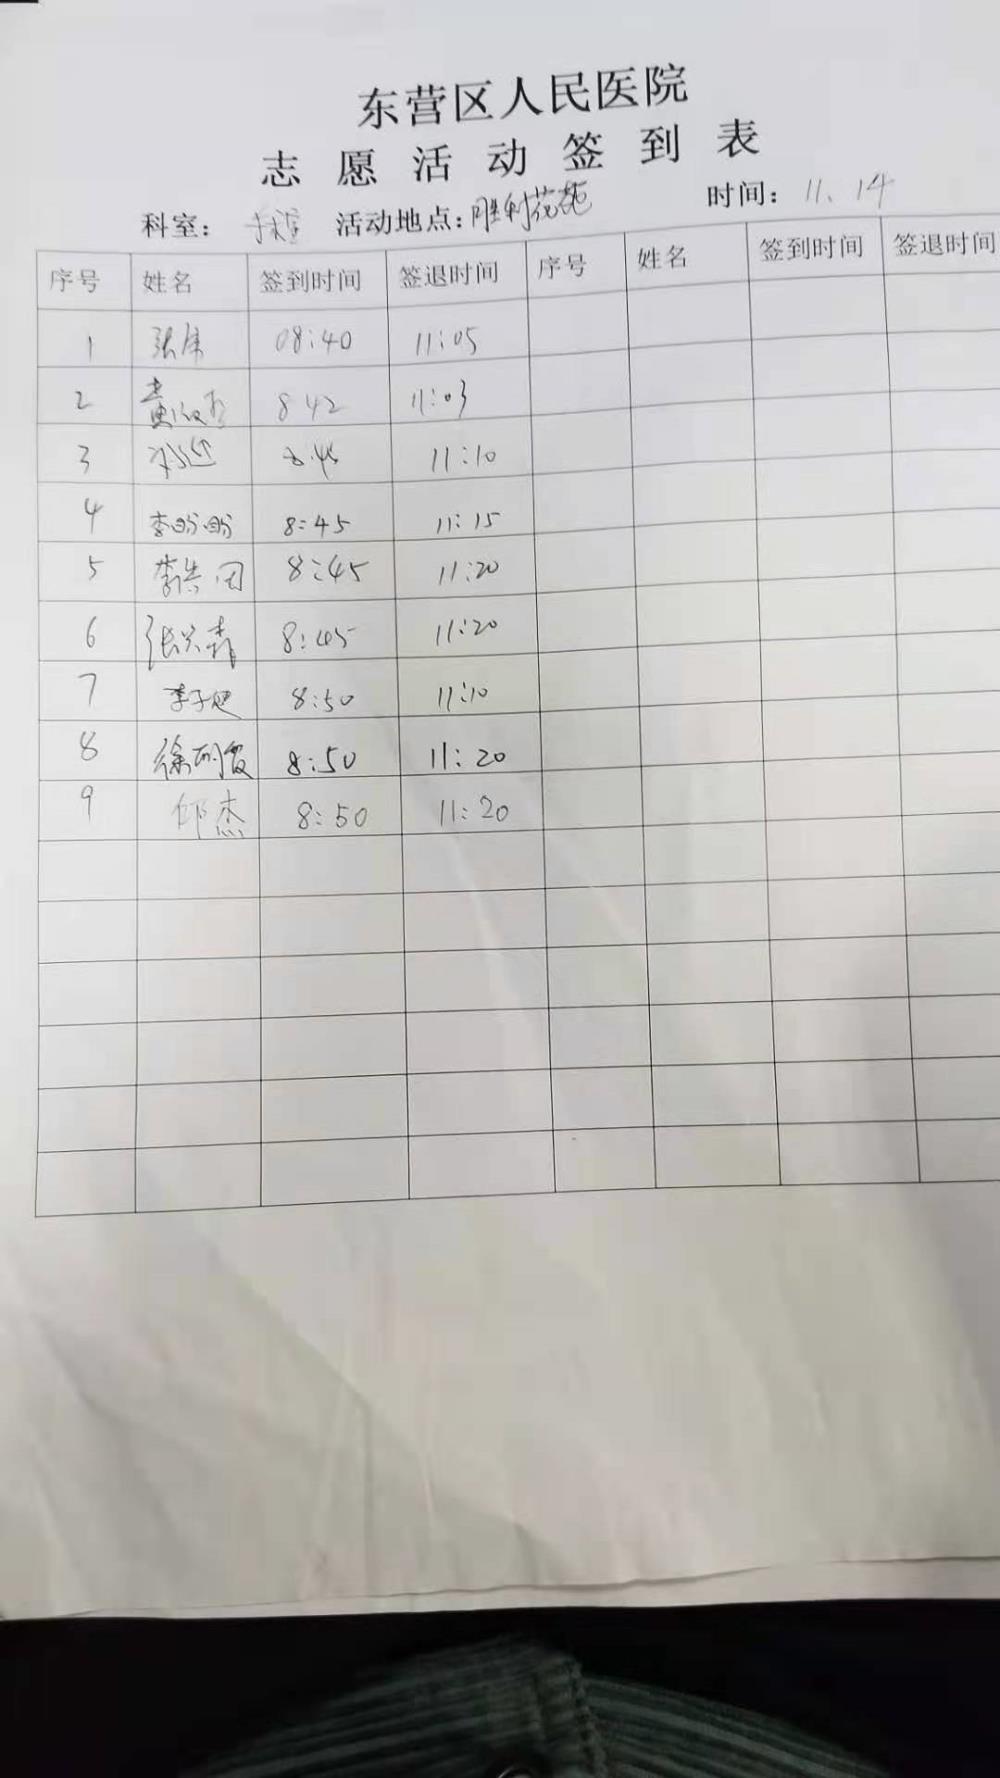 东营区人民医院
志愿活动签到表
科室： 手术室 活动地点：胜利花苑 时间：11.14
序号 姓名 签到时间 签退时间 序号 姓名 签到时间 签退时间
1 08:40 11:05
2 8 42 11:03
3 8:45 11:10
4 李盼盼 8:45 11:15
5 8:45 11:20
6 8:45 11:20
7 8:50 11:10
8 8:50 11:20
9 邱杰 8:50 11:20